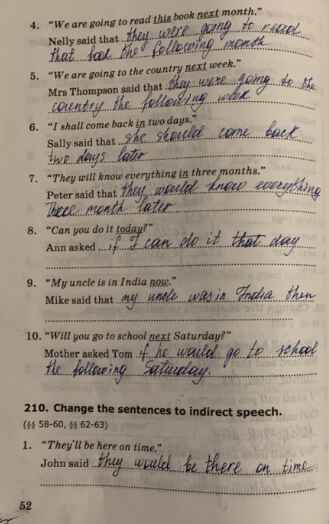 4. "We are going to read this book next month."
Nelly said that they were going to read
that book the following month
5. "We are going to the country next week."
Mrs Thompson said that they were going to the
country the following week
6. "I shall come back in two days."
Sally said that she should come back
two days later
7. "They will know everything in three months."
Peter said that they would know everything
three month later
8. "Can you do it today?"
Ann asked if I can do it that day
9. "My uncle is in India now."
Mike said that my uncle was in India then
10. "Will you go to school next Saturday?"
Mother asked Tom if he would go to school
the following Saturday.
210. Change the sentences to indirect speech.
(§§ 58-60, §§ 62-63)
1. "They'll be here on time."
John said they would be there on time
52